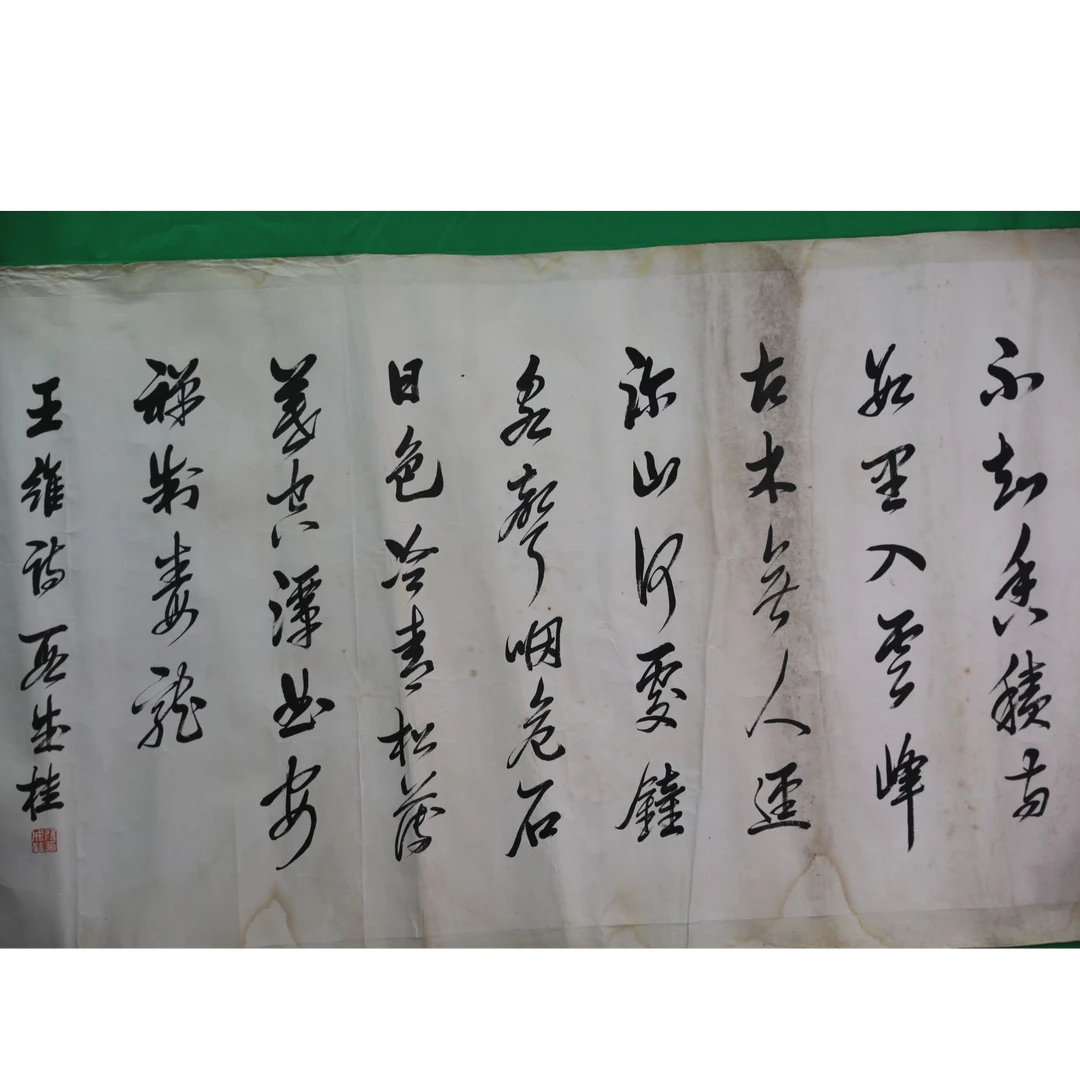 不知香積寺
數里入雲峰
古木無人逕
深山何處鐘
泉聲咽危石
日色冷青松薄
暮空潭曲安
禪制毒龍
王維詩 成桂